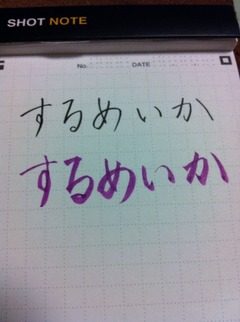 SHOT NOTE
No. DATE
するめいか
するめいか